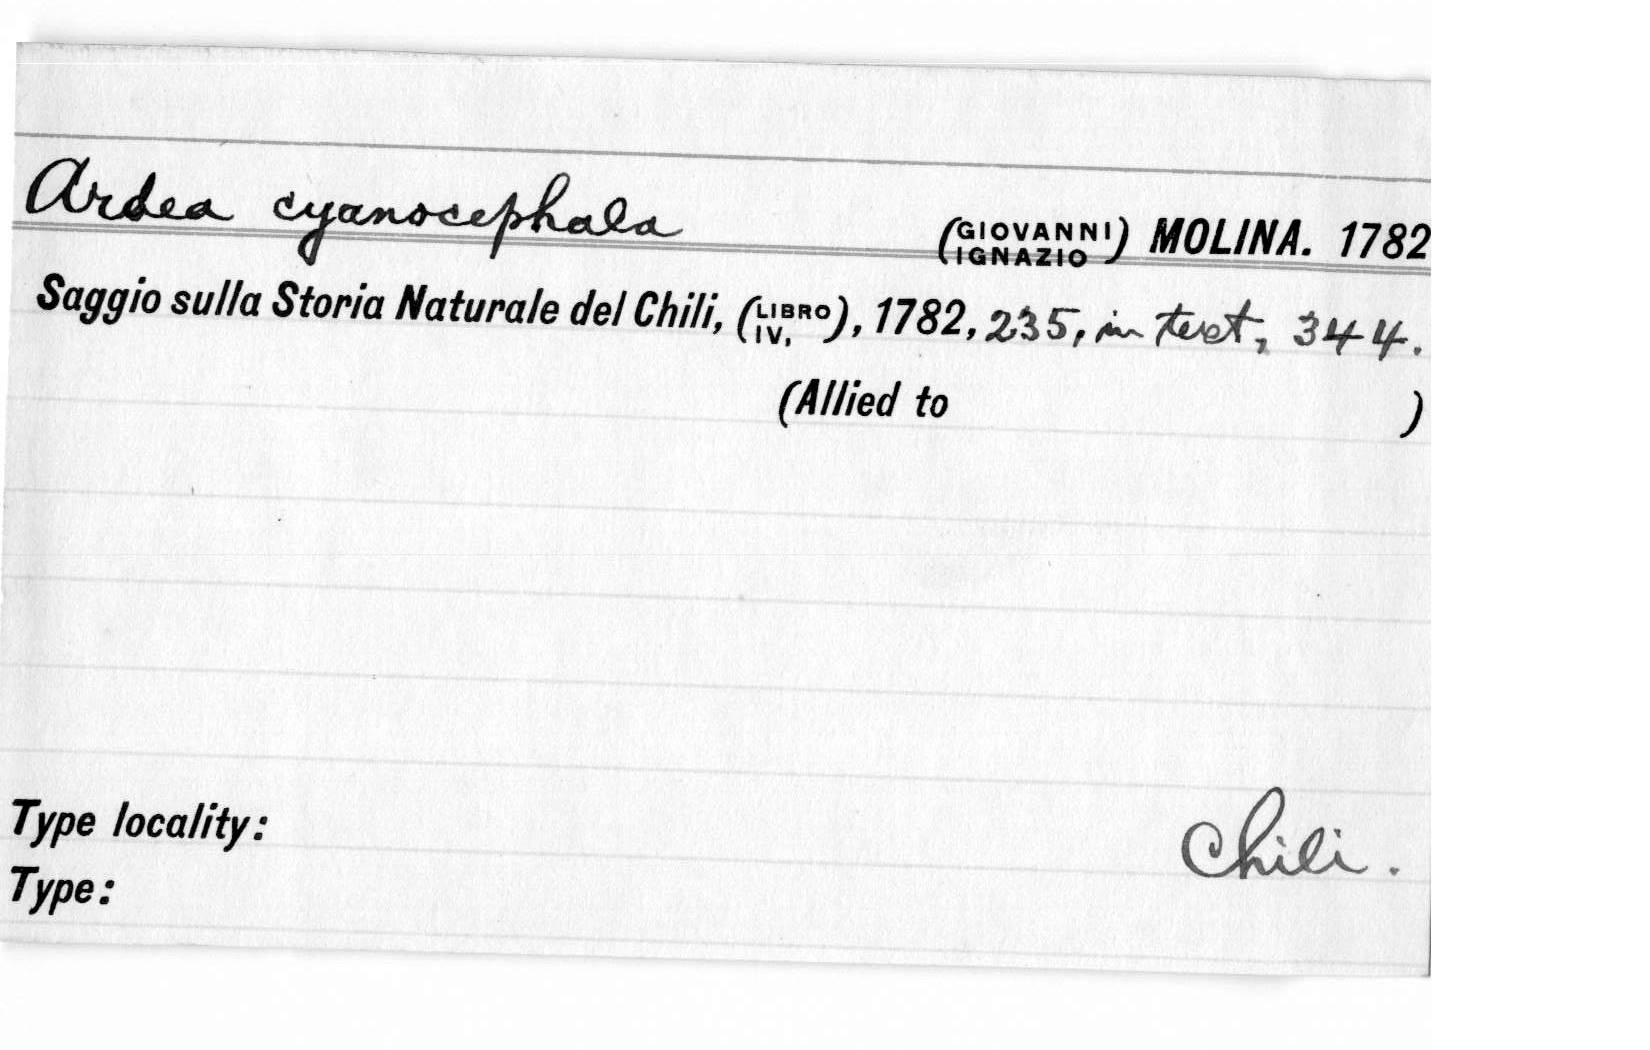 Ardea cyanocephala (GIOVANNI IGNAZIO) MOLINA. 1782
Saggio sulla Storia Naturale del Chili, (LIBRO IV,), 1782, 235, in text, 344.
(Allied to )
Type locality: Chili.
Type: